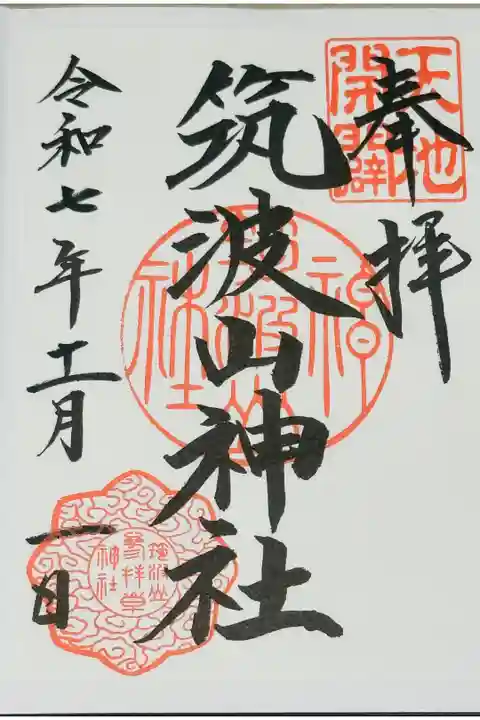 奉拝
天地開闢
筑波山神社
筑波山神社
令和七年十一月一日
筑波山
参拝章
神社